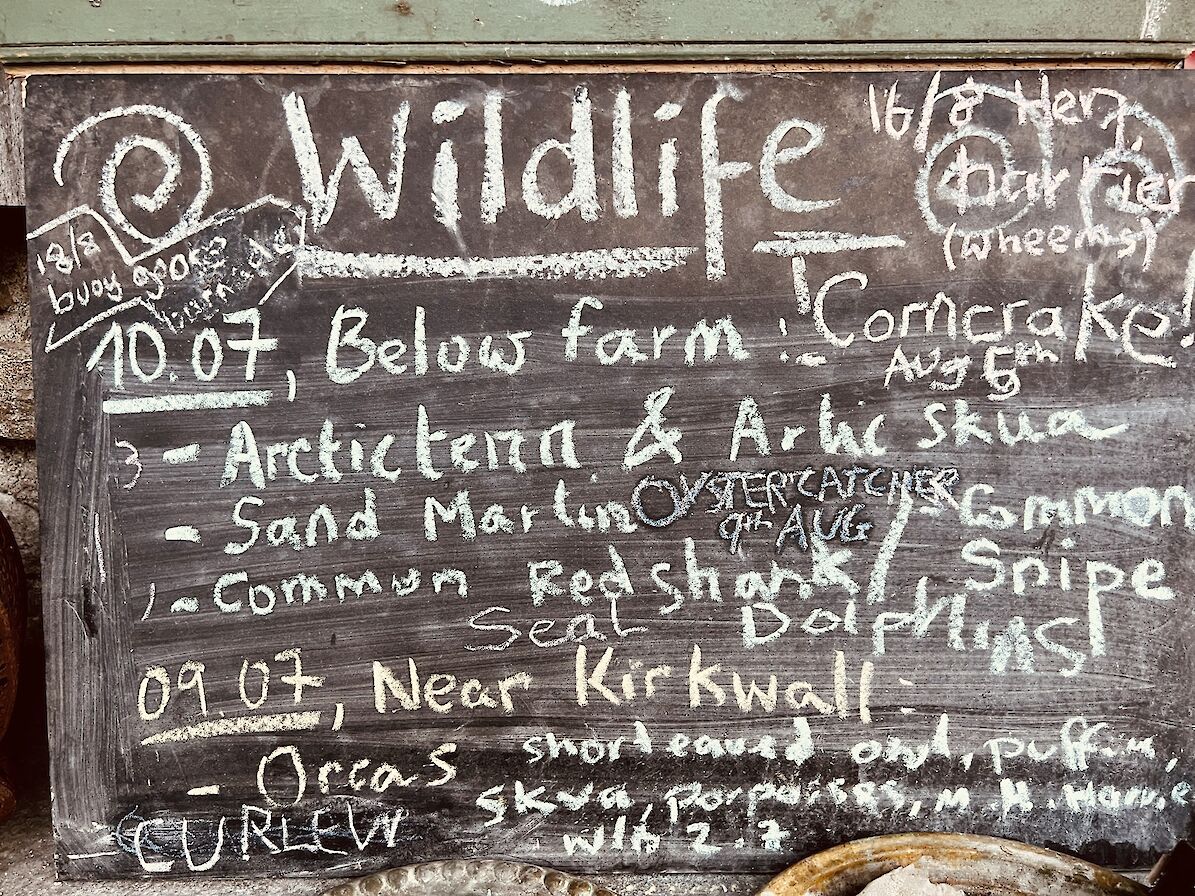 Wildlife
16/8 Hen
harrier
(wheems)
18/8
buoy
10.07, Below farm :
! Corncrake!
Aug 5th
3 - Arctictern & Artic skua
- Sand Martin
OYSTERCATCHER
9th AUG
1 - Common Redshank / Common
Snipe
Seal Dolphins
09.07, Near Kirkwall
- Orcas
short eared owl, puffin,
skua, porpoises, M.H. Harrie
W/b 2.7
- CURLEW